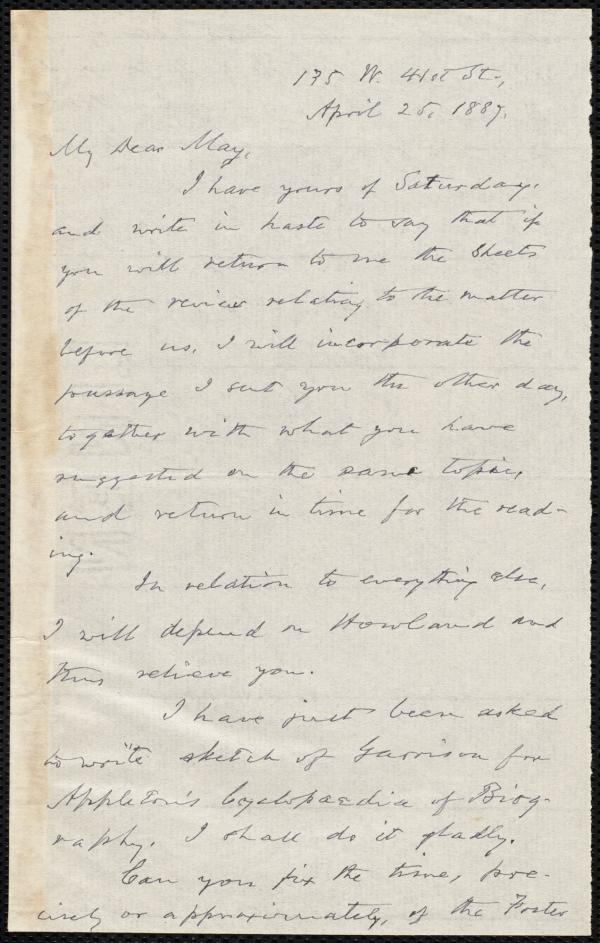 175 W. 41st St.,
April 25, 1887.
My Dear May,
I have yours of Saturday,
and write in haste to say that if
you will return to me the sheets
of the review relating to the matter
before us, I will incorporate the
passage I sent you the other day,
together with what you have
suggested on the same topic,
and return in time for the read-
ing.
In relation to everything else,
I will depend on Howland and
thus relieve you.
I have just been asked
to write sketch of Garrison for
Appleton's Cyclopaedia of Biog-
raphy. I shall do it gladly.
Can you fix the time, pre-
cisely or approximately, of the Foster